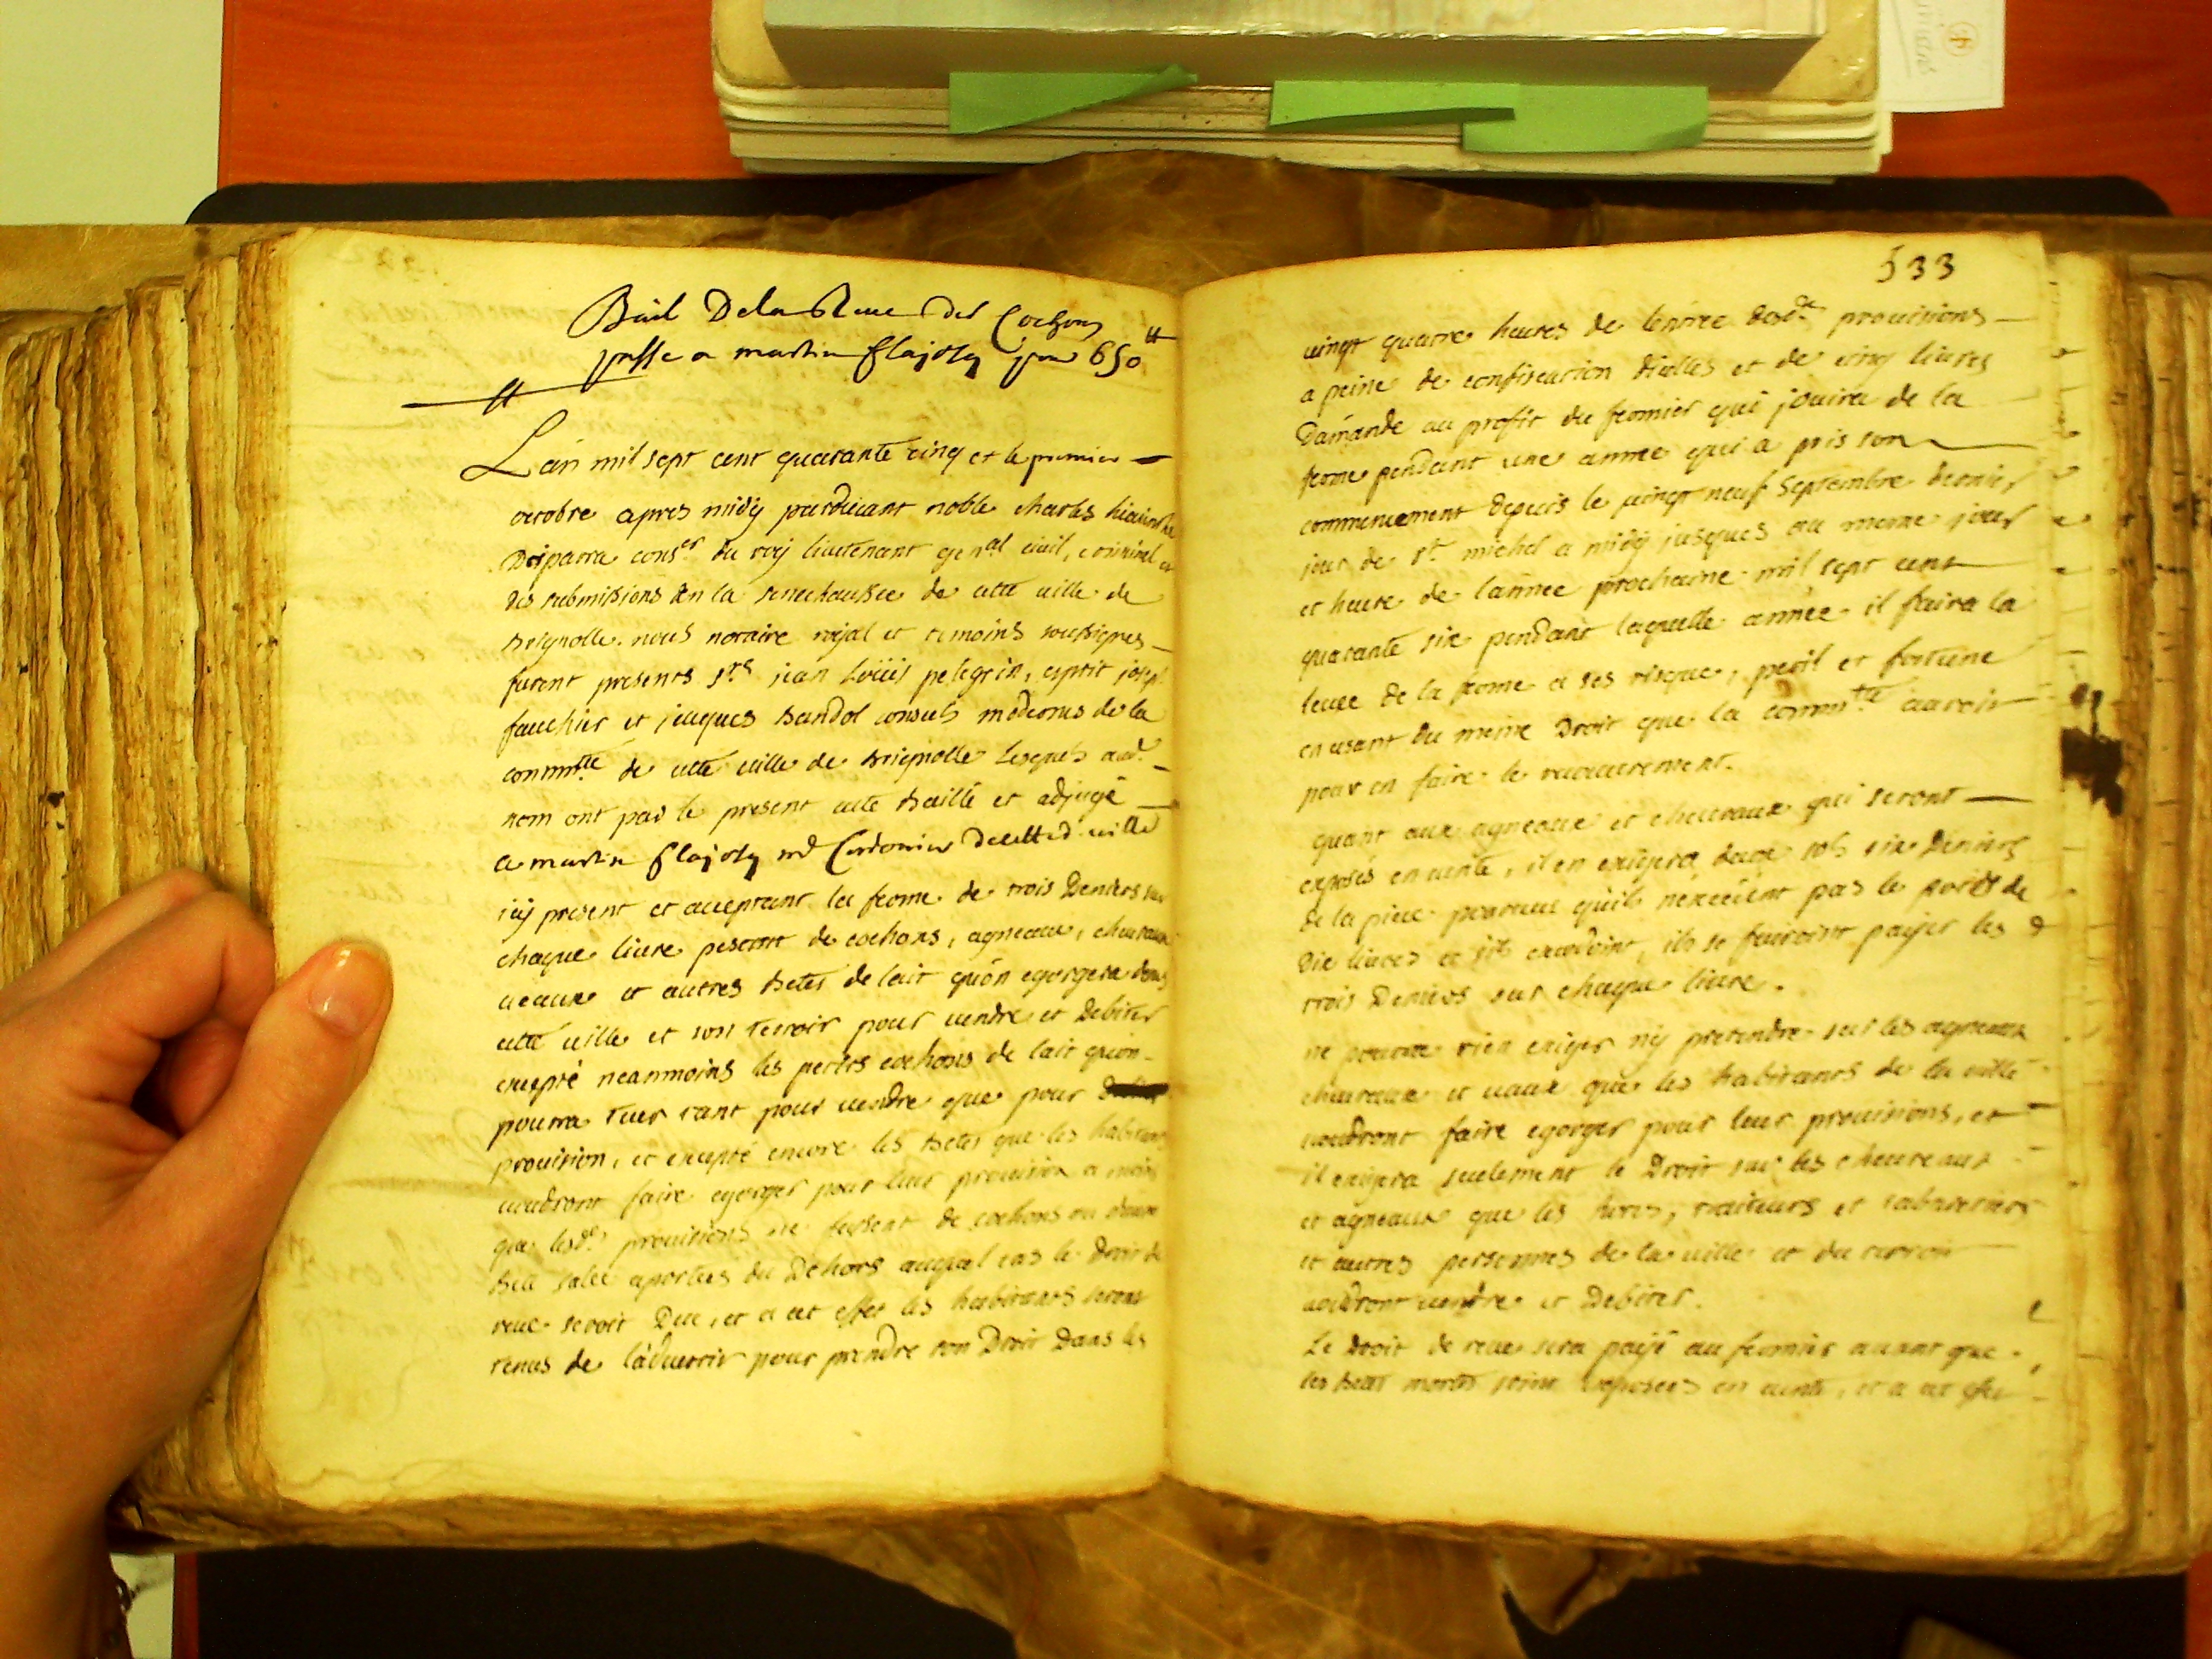 Bail De la Reue des Cochons
passe a martin flajosy pour 650 ₶
L'an mil sept cent quarante cinq et le premier
octobre apres midy pardevant noble charles hiacinthe
Desparra cons.er du roy lieutenant general civil, criminel et
des submissions en la senechaussée de cette ville de
brignolle. nous notaire royal et temoins soussignes
furent presents s.rs jean Loüis pelegrin, esprit joseph
fauchier et jacques bandol consuls modernes de la
commtté de cette ville de brignolle lesquels aud.
nom ont par le present acte baillé et adjugé
a martin flajosy m.d Cordonier de cette d. ville
icy present et acceptant la ferme de trois Deniers sur
chaque livre pesant de cochons, agneaux, chevraux
veaux et autres betes de lait qu'on egorgera dans
cette ville et son terroir pour vendre et debiter
excepté neanmoins les petits cochons de lait qu'on
pourra tuer tant pour vendre que pour
provision, et excepté encore les betes que les habitans
voudront faire egorger pour leur provision a moins
que lesd.es provisions ne fussent de cochons ou d'autre
salée aportées du Dehors auquel cas le droit de
reue seroit Due, et a cet effet les habitants seront
tenus de l'advertir pour prendre son Droit Dans les
533
vingt quatre heures de l'entrée desd.es provisions
a peine de confiscation d'icelles et de cinq livres
D'amande au profit du fermier qui jouira de la
ferme pendant une année qui a pris son
commencement depuis le vingt neuf septembre dernier
jour de s.t michel a midy jusques au meme jour
et heure de l'année prochaine mil sept cent
quarante six pendant laquelle année il faira la
levée de la ferme a ses risque, peril et fortune
en usant du meme Droit que la comm.tté auroit
pour en faire le recouvrement.
quant aux agneaux et chevraux qui seront
exposés en vente, il en exigera deux sols six Deniers
de la piece pourveu qu'ils n'excedent pas le poids de
Dix livres et s'ils excedoint, ils se fairoint payer les
trois Deniers sur chaque livre.
ne pourra rien exiger ny pretendre sur les agneaux
chevraux et veaux que les habitants de la ville
voudront faire egorger pour leur provisions, et
il exigera seulement le Droit sur les chevreaux
et agneaux que les hotes, traiteurs et cabaretiers
et autres personnes de la ville et du terroir
voudront vendre et Debiter.
Le Droit de reue sera payé au fermier avant que
les betes mortes soint exposees en vente, et a cet effet